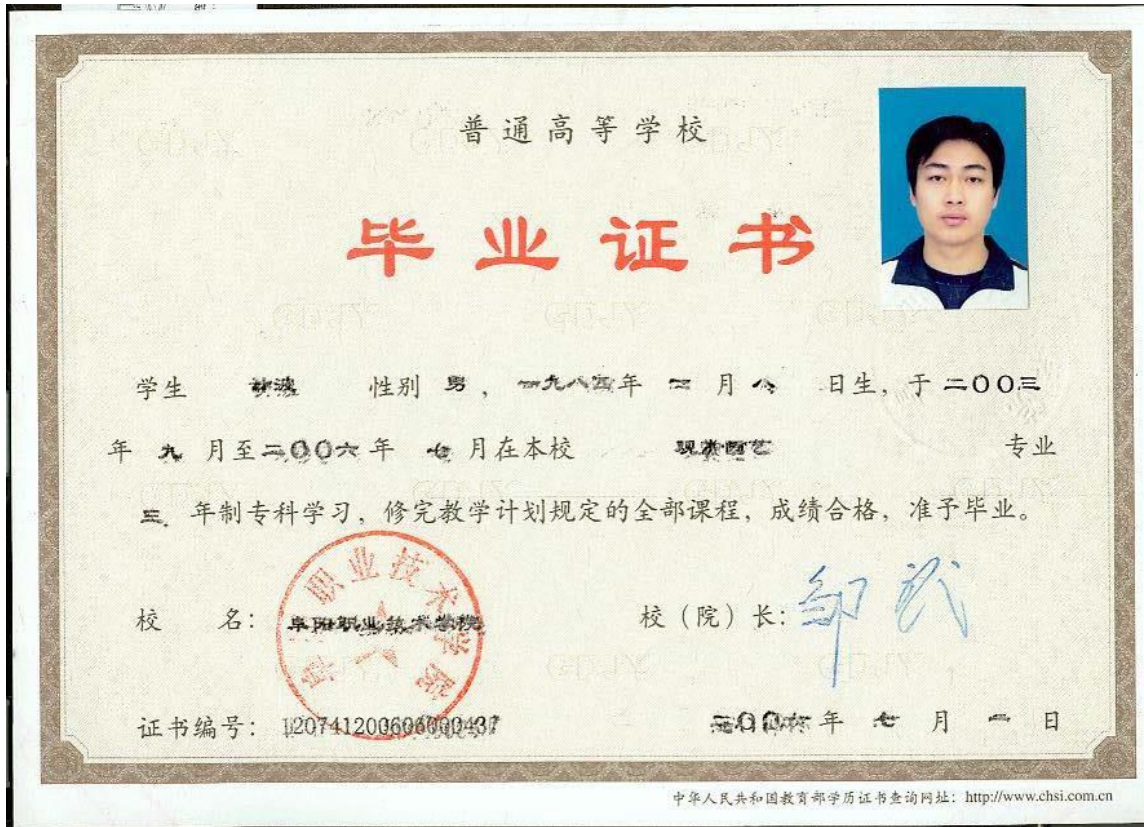 普通高等学校
毕业证书
学生 性别 男，一九八四年 二 月 八 日生，于 二〇〇三
年 九 月至二〇〇六年 七 月在本校 观赏园艺 专业
三 年制专科学习，修完教学计划规定的全部课程，成绩合格，准予毕业。
职业技术学院
校 名：阜阳职业技术学院 校（院）长：
证书编号：120741200606000437 二〇〇六年 七 月 一 日
中华人民共和国教育部学历证书查询网址：http://www.chsi.com.cn